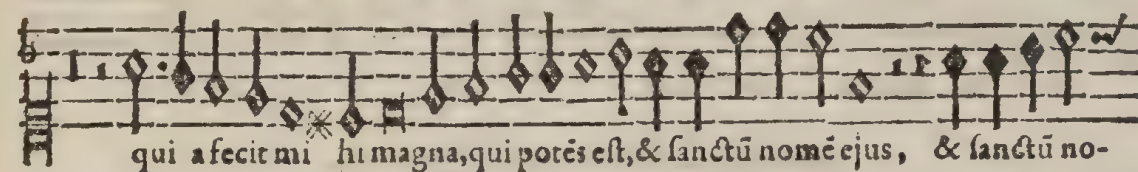 qui a fecit mi hi magna, qui potēs eſt, & ſanctū nomē ejus, & ſanctū no-